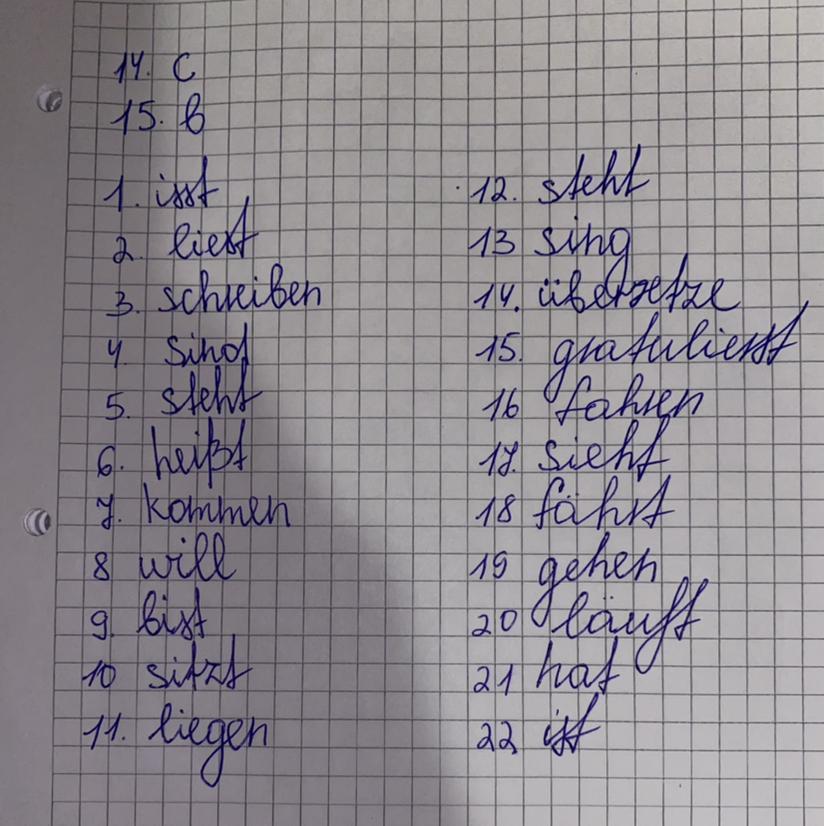 14. C
15. B
1. isst
2. liest
3. schreiben
4. sind
5. steht
6. heißt
7. kommen
8 will
9. bist
10 sitzt
11. liegen
12. steht
13 sing
14. übersetze
15. gratulierst
16 fahren
17. sieht
18 fährt
19 gehen
20 läuft
21 hat
22 ist